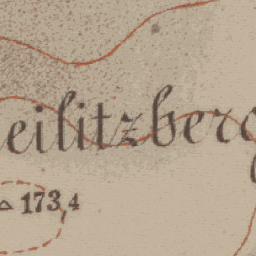 eilitzberg
173,4